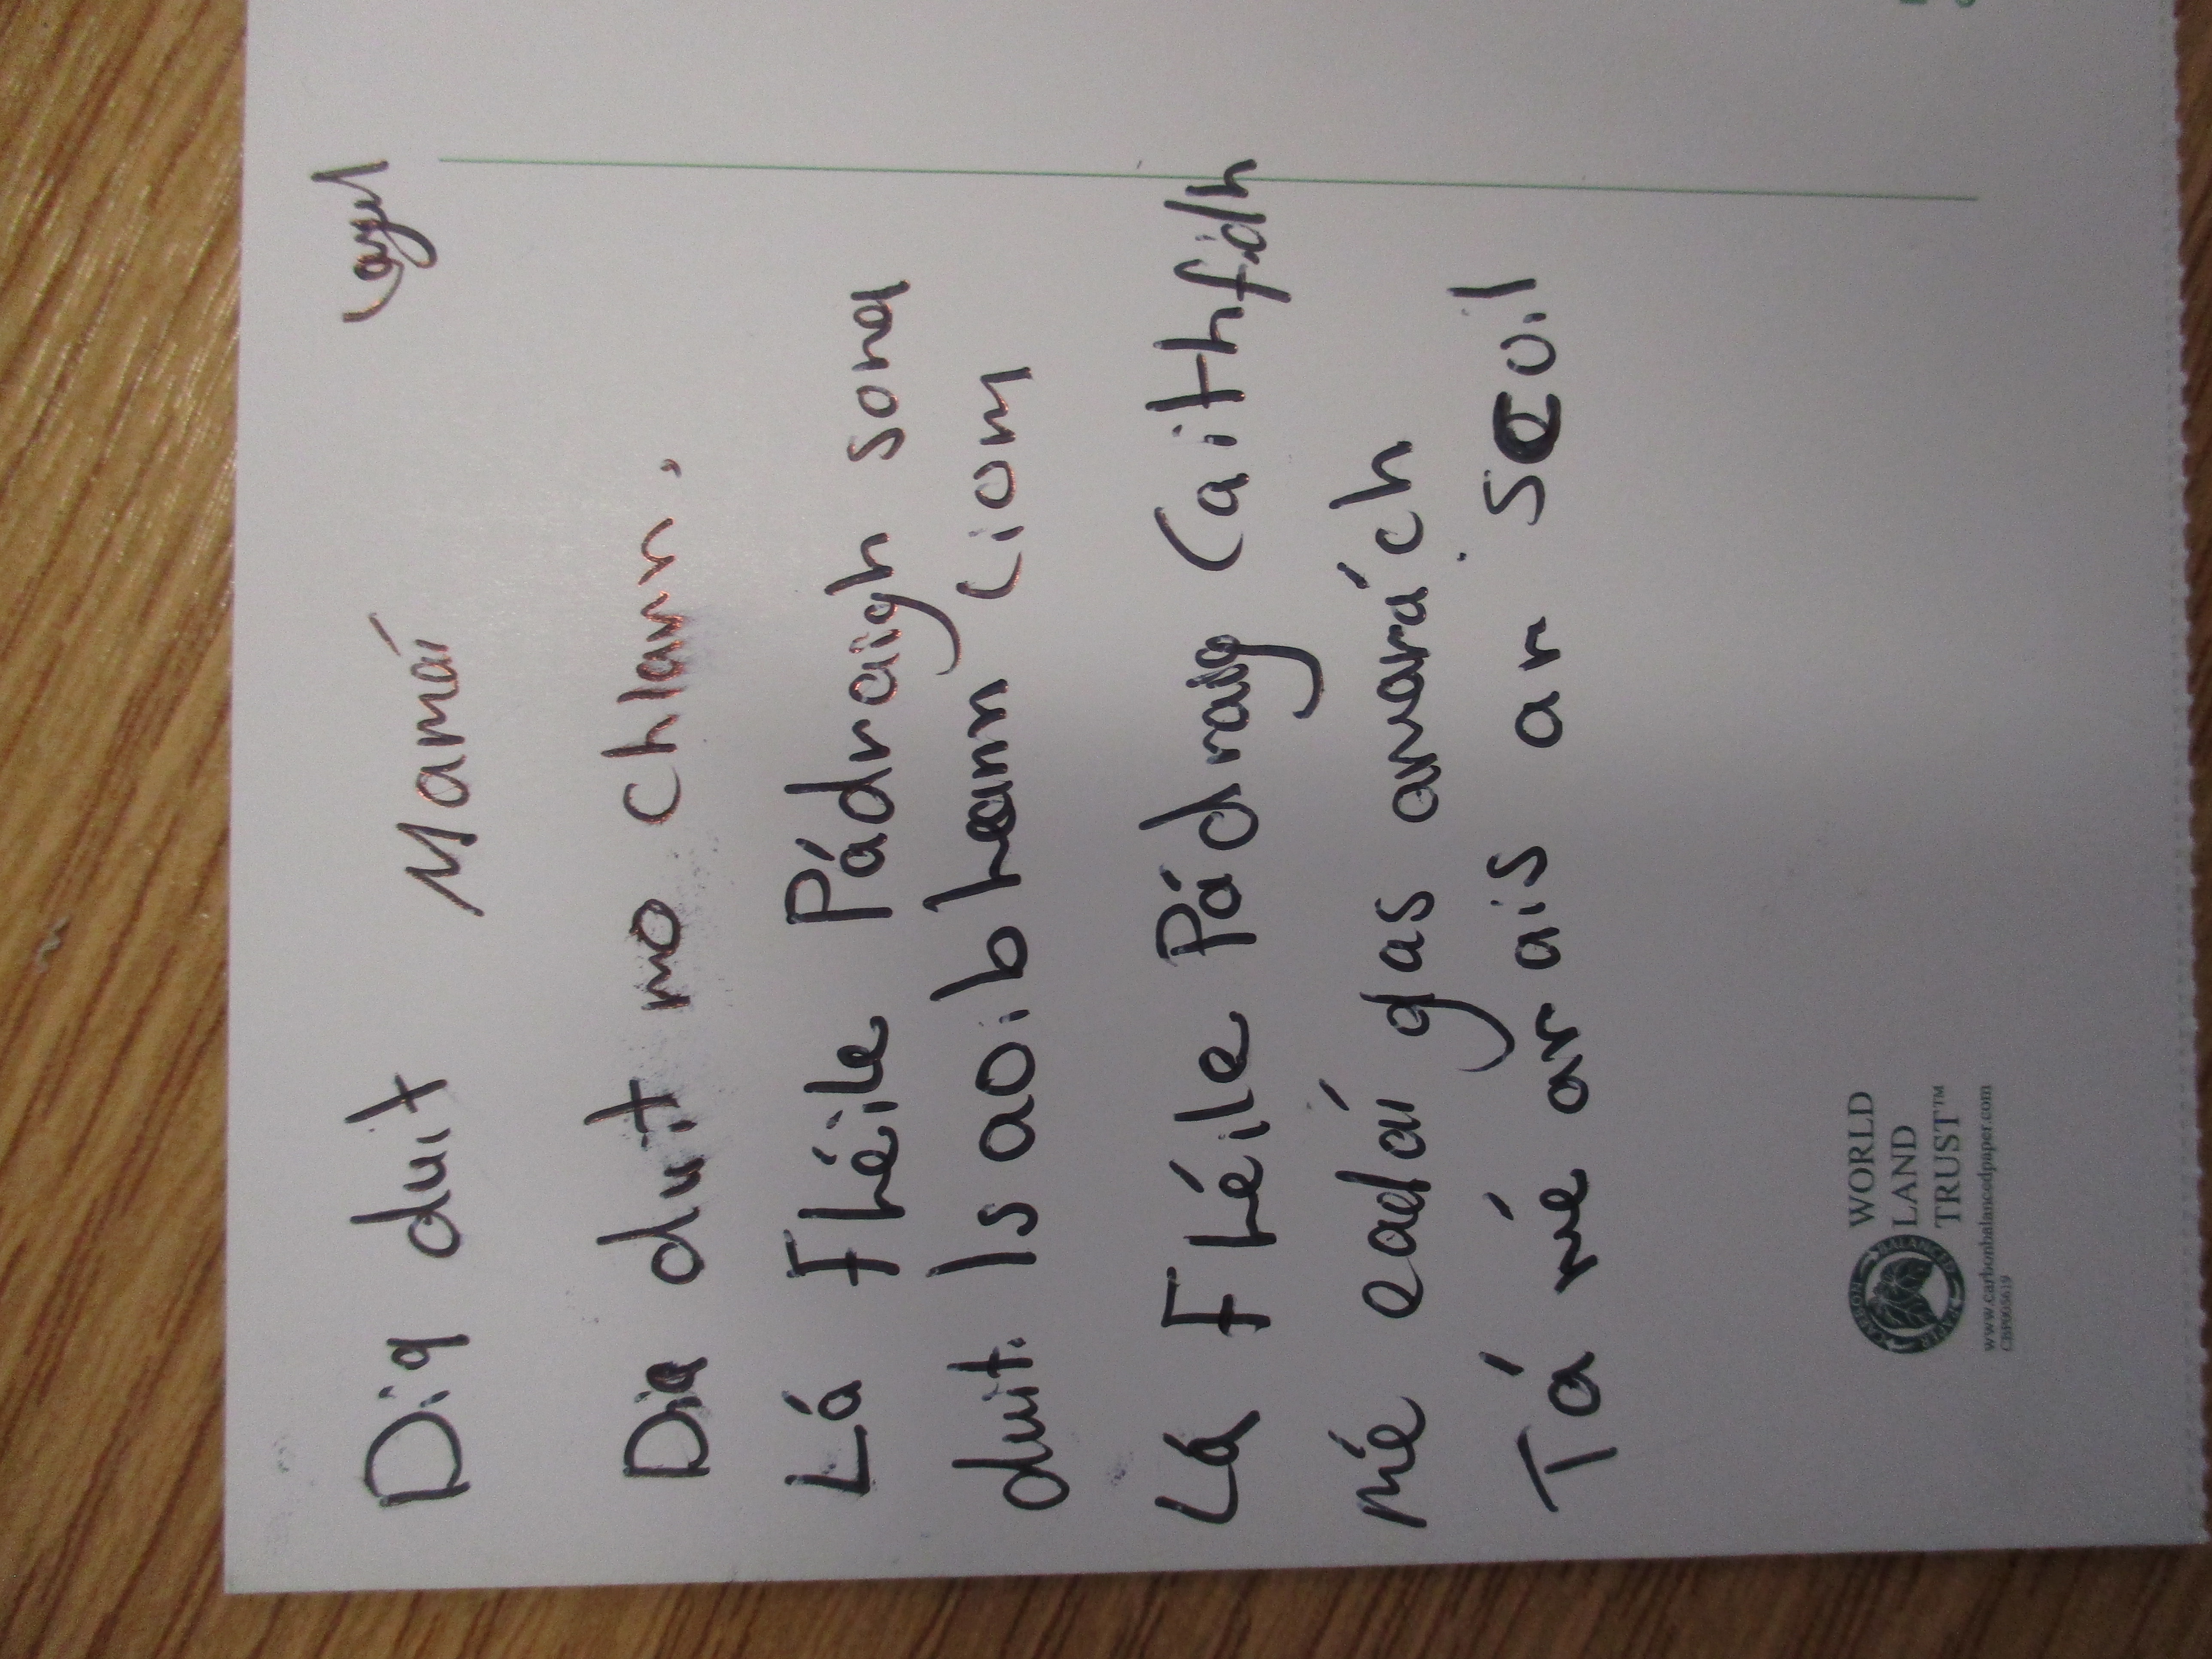 Dia duit Mamaí
Dia duit mo chlann.
Lá Fhéile Pádraigh sona
duit. Is aoibheann liom
Lá Fhéile Pádraig Caithfidh
mé eadaí glas amarách
Tá mé ar ais ar scoil
WORLD
LAND
TRUST™
CARBON BALANCED PAPER
www.carbonbalancedpaper.com
CBP005619